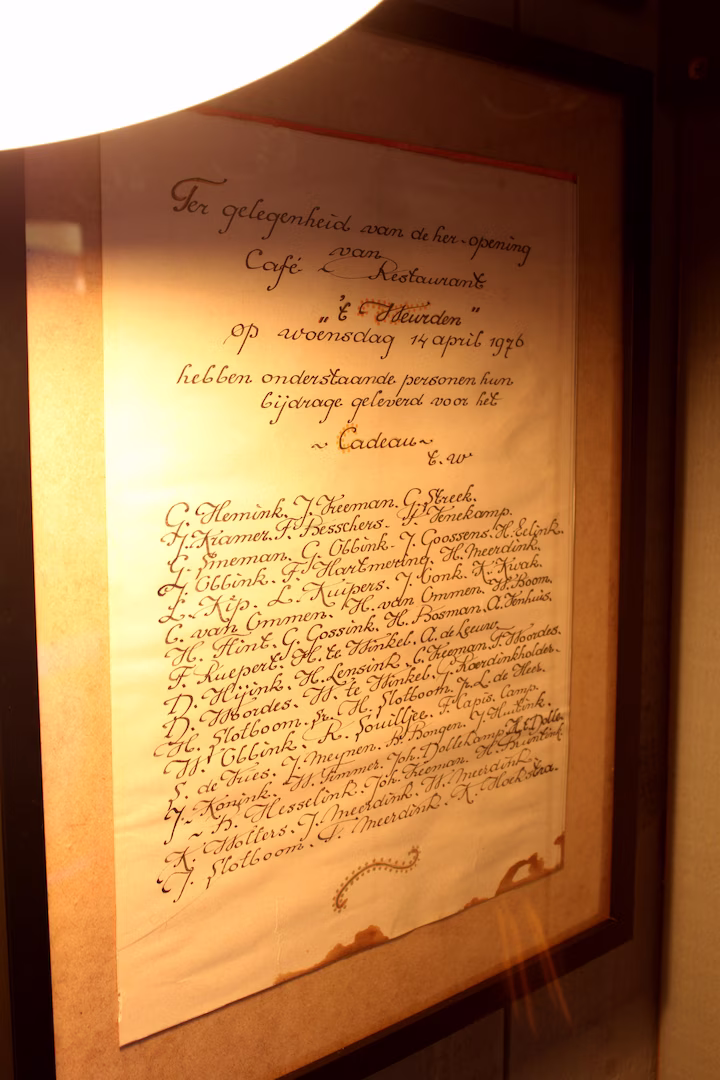 Ter gelegenheid van de her-opening
van
Café Restaurant
„'t Heurden"
op woensdag 14 april 1976
hebben onderstaande personen hun
bijdrage geleverd voor het
~ Cadeau ~
t.w
G. Hemink. J. Freeman. G. Streek.
J. Kramer. F. Besschers. F. Tenekamp.
G. Sineman. G. Obbink. J. Goossens. H. Eelink.
J. Obbink. F. Hartmering. H. Meerdink.
L. Kip. L. Kuipers. J. Vonk. K. Kwak.
C. van Ommen. H. van Ommen. W. Boom.
H. Hint. G. Gossink. H. Bosman. A. Venhuis.
F. Ruepert. H. te Winkel. A. de Leeuw.
D. Wijink. H. Lensink. C. Freeman. F. Woordes.
D. Wordes. W. te Winkel.
H. Slotboom. Sr. H. Slotboom. Jr. L. de Heer.
W. Obbink. R. Souilljee. F. Lapis. Camp.
S. de Vries. J. Meijnen. B. Bongen. J. Huitink.
J. Konink. W. Timmer. Joh. Dollekamp.
~ B. Hesselink. Joh. Freeman. H. Bruntink.
K. Wolters. J. Meerdink. W. Meerdink.
J. Slotboom. F. Meerdink. K. Hoekstra.